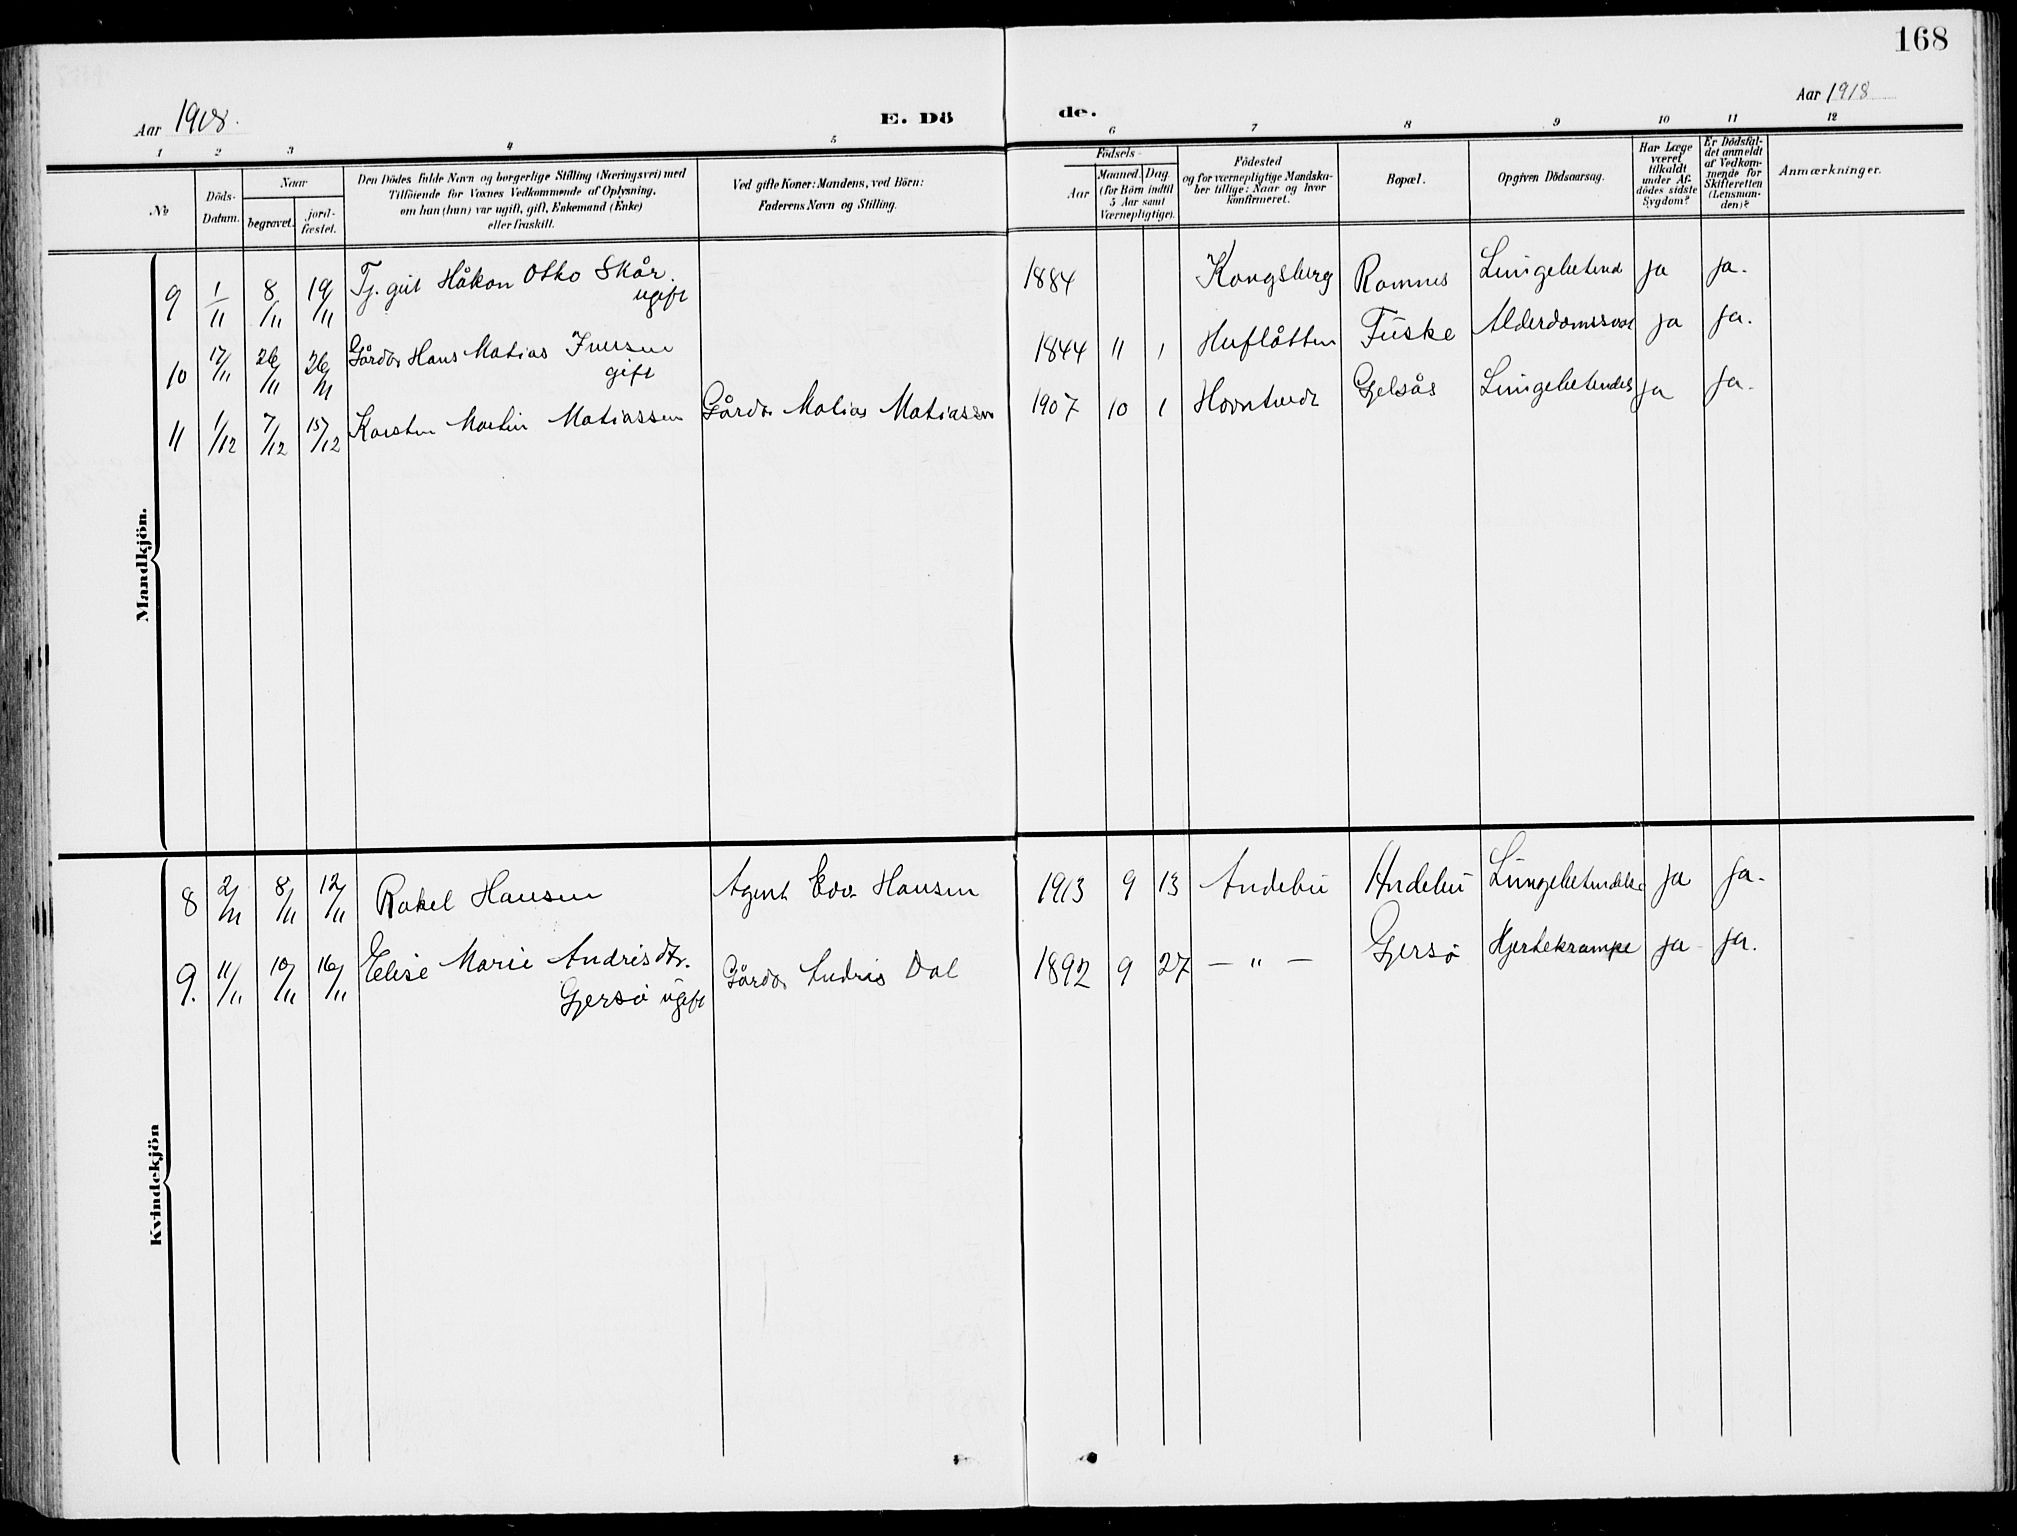 168
Aar 1918.
E. Dö
de.
Aar 1918
1 2 3 4 5 6 7 8 9 10 11 12
No
Döds-
Datum.
Naar
begravet.
jord-
fæstet.
Den Dödes fulde Navn og borgerlige Stilling (Næringsvei) med
Tilföiende for Voxnes Vedkommende af Oplysning,
om han (hun) var ugift, gift, Enkemand (Enke)
eller fraskilt.
Ved gifte Koner: Mandens, ved Börn:
Faderens Navn og Stilling.
Födsels-
Aar
Maaned. Dag.
(for Börn indtil
5 Aar samt
Værnepligtige).
Födested
og for værnepligtige Mandska-
ber tillige: Naar og hvor
konfirmeret.
Bopæl.
Opgiven Dödsaarsag.
Har Læge
været
tilkaldt
under Af-
dödes sidste
Sygdom?
Er Dödsfal-
det anmeldt
af Vedkom-
mende for
Skifteretten
(Lensman-
den)?
Anmærkninger.
Mandkjön.
9 1/11 8/11 19/11 Tj. gut Håkon Otto Skår. 1884 Kongsberg Ramnes Lungebetend ja ja.
ugift
10 17/11 26/11 26/11 Gårdbr Hans Matias Iversen 1844 11 1 Huflåtten Fuske Alderdomssvak ja ja.
gift
11 1/12 7/12 15/12 Karsten Martin Matiassen Gårdbr Matias Matiassen 1907 10 1 Hovntvedt Gjelsås Lungebetendels ja ja.
Kvindekjön
8 2/11 8/11 12/11 Rakel Hansen Agent Edv. Hansen 1913 9 13 Andebu Andebu Lungebetendelse ja ja.
9. 11/11 10/11 16/11 Elise Marie Andrisdtr. Gårdbr Andris Dal 1892 9 27 — " — Gjersø Hjertekrampe ja ja.
Gjersø ugift